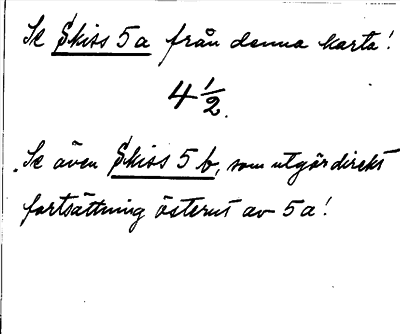 Se Skiss 5a från denna karta!
4 1/2.
Se även Skiss 5 b, som utgör direkt
fortsättning österut av 5a!